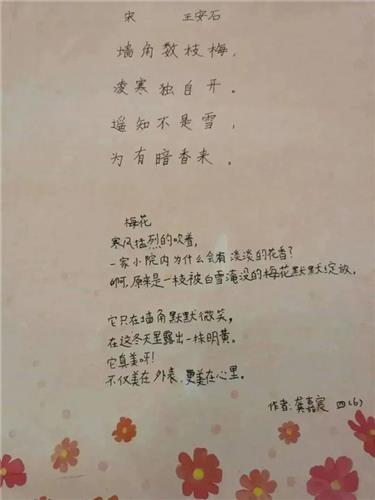 宋 王安石
墙角数枝梅，
凌寒独自开。
遥知不是雪，
为有暗香来。
梅花
寒风猛烈的吹着，
一家小院内为什么会有淡淡的花香？
啊，原来是一枝被白雪淹没的梅花默默绽放，
它只在墙角默默微笑，
在这冬天里露出一抹明黄。
它真美呀！
不仅美在外表，更美在心里。
作者：龚嘉宸 四(6)